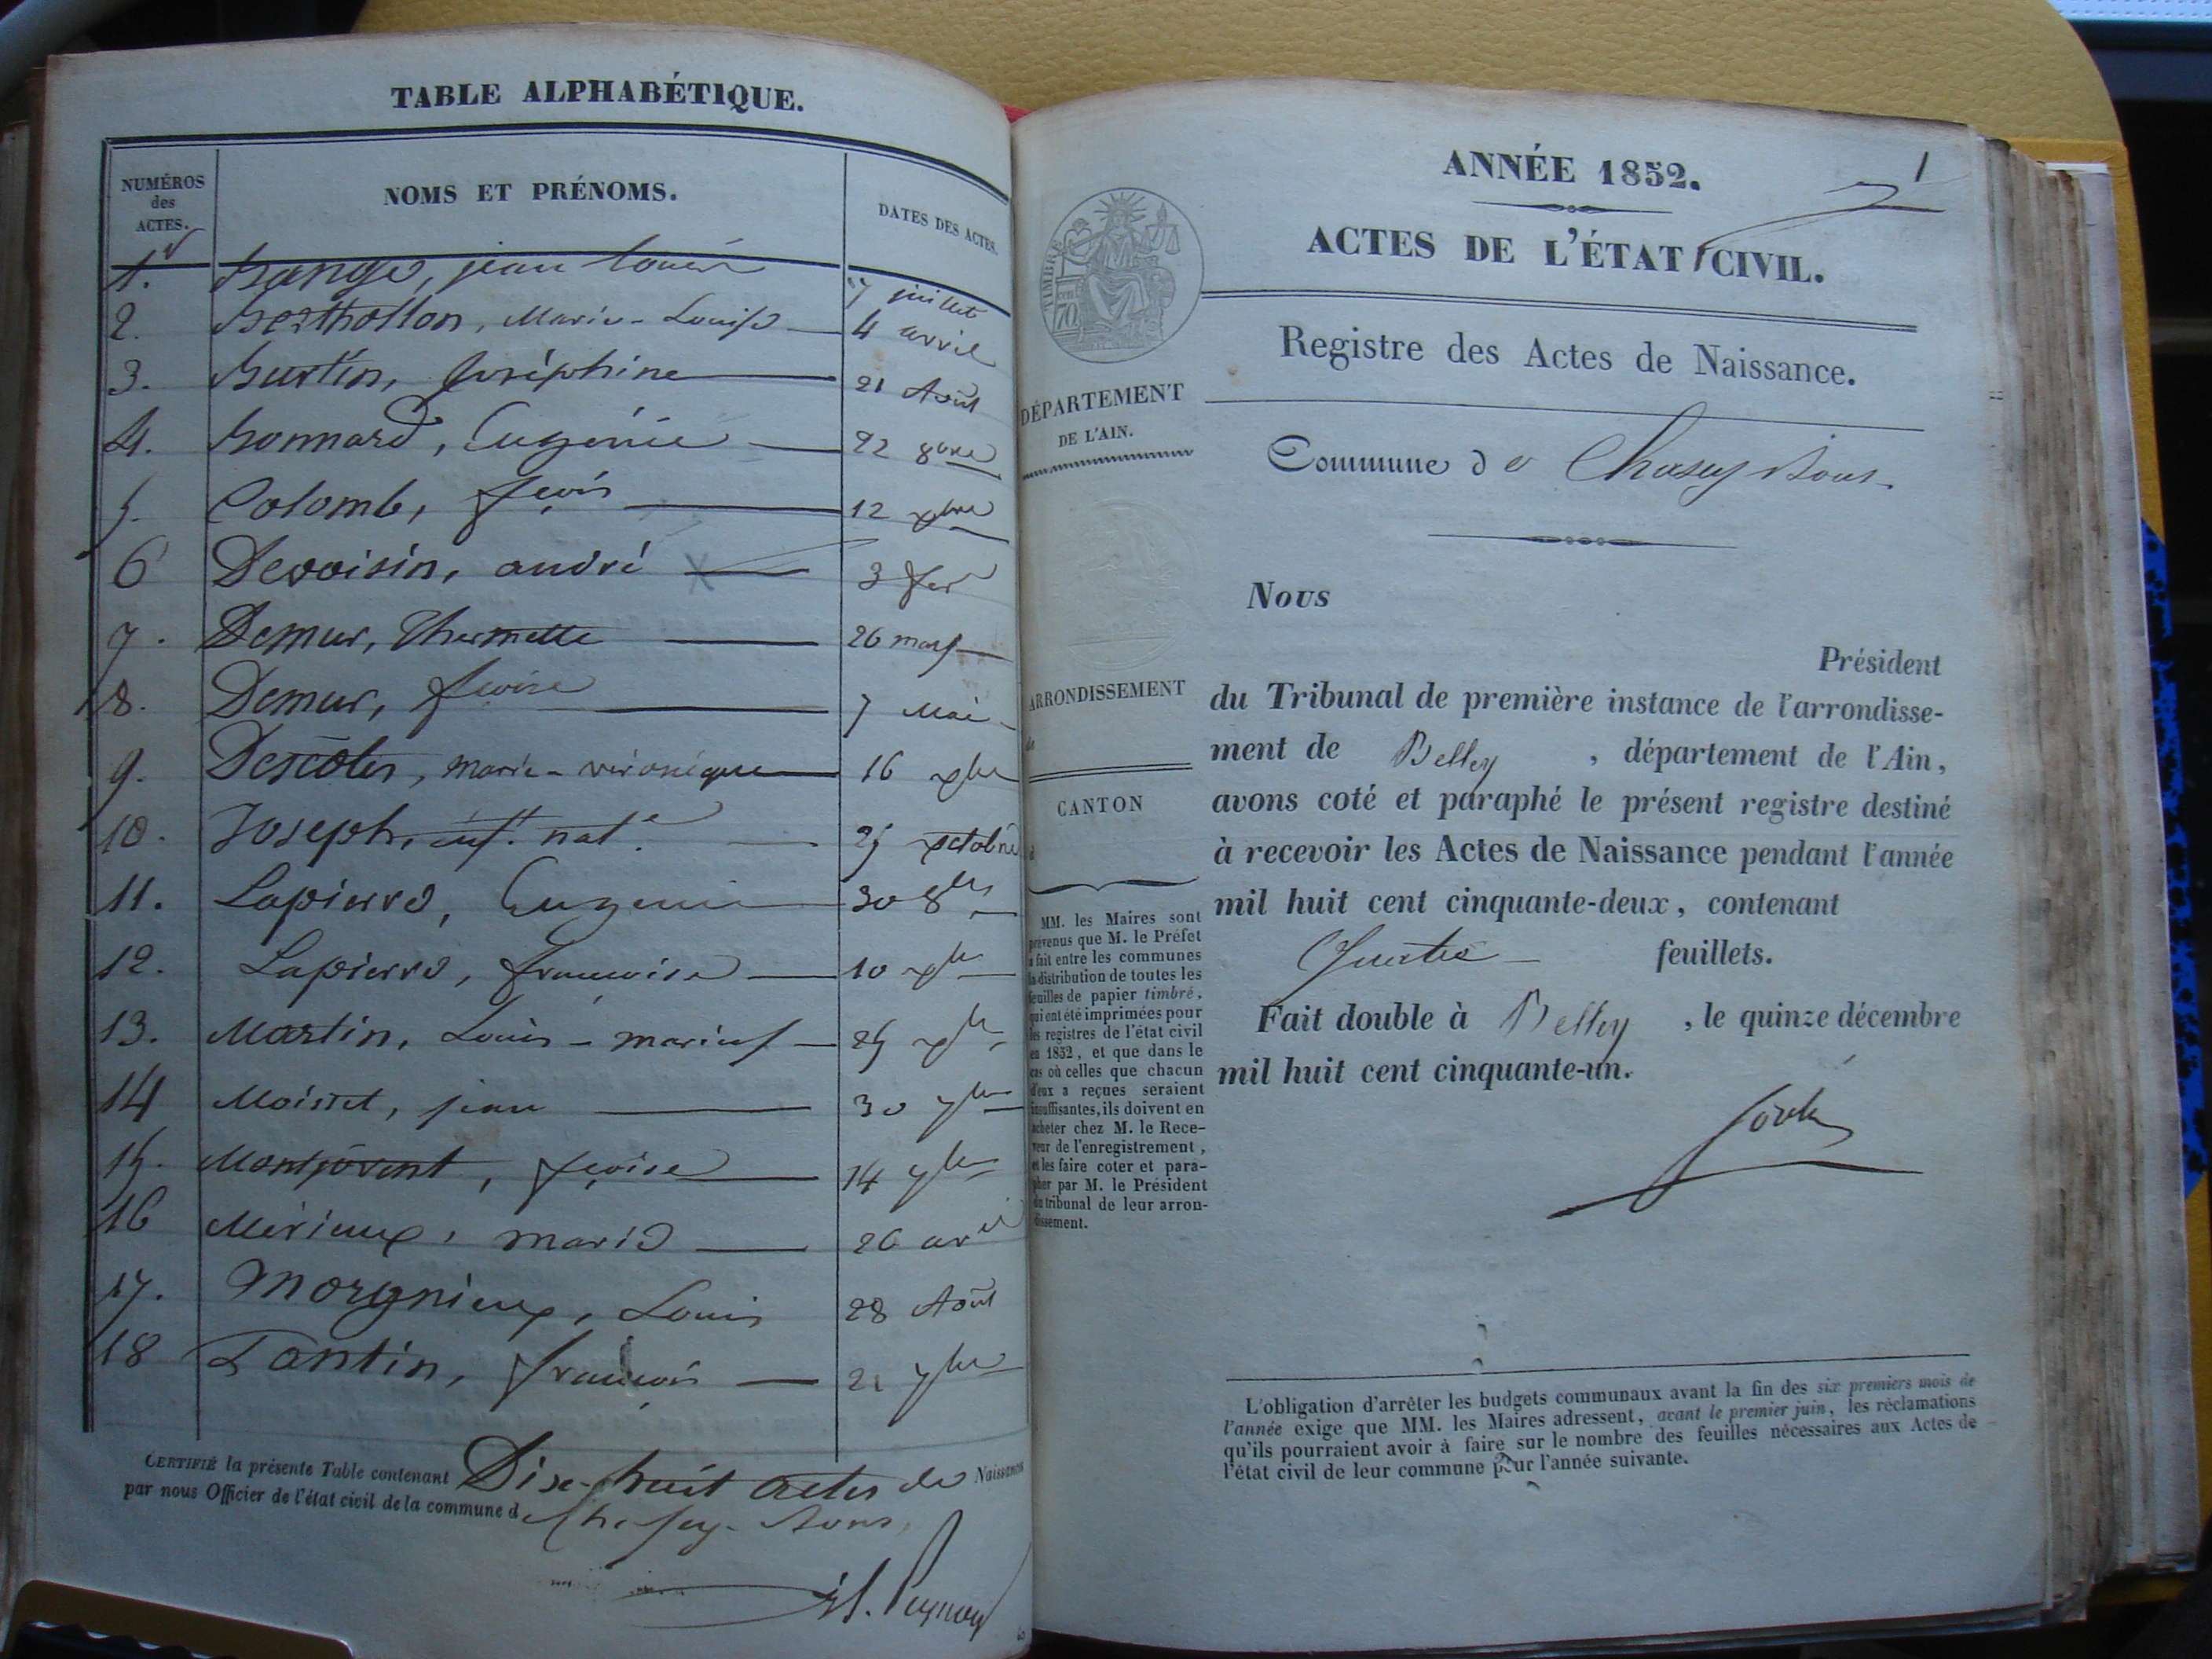 TABLE ALPHABÉTIQUE.
NUMÉROS
des
ACTES.
NOMS ET PRÉNOMS.
DATES DES ACTES.
1. Bange, jean Louis 7 juillet
2. Berthollon, Marie-Louise 4 avril
3. Burtin, Joséphine 21 Août
4. Bonnard, Eugénie 22 8bre
5. Colomb, fçois 12 xbre
6 Devoisin, andré 3 fer
7. Demur, Thermette 26 mars
8. Demur, fçoise 7 Mai
9. Descotes, marie-véronique 16 xbre
10. Joseph, enft. nat. 25 octobre
11. Lapierre, Eugenie 30 8bre
12. Lapierre, françoise 10 xbre
13. Martin, Louis-marius 25 xbre
14 Moisset, jean 30 7bre
15. Montjovent, fçoise 14 7bre
16 Mérieux, marie 26 avril
17. Morgnieux, Louis 28 Août
18 Tantin, françois 21 7bre
CERTIFIÉ la présente Table contenant Dix-huit actes de Naissances
par nous Officier de l'état civil de la commune de Chasey-Bons,
ANNÉE 1852.
1
ACTES DE L'ÉTAT CIVIL.
TIMBRE
70
Registre des Actes de Naissance.
DÉPARTEMENT
DE L'AIN.
Commune de Chasey Bons.
Nous
Président
du Tribunal de première instance de l'arrondisse-
ment de Belley, département de l'Ain,
avons coté et paraphé le présent registre destiné
à recevoir les Actes de Naissance pendant l'année
mil huit cent cinquante-deux, contenant
Quatre feuillets.
Fait double à Belley, le quinze décembre
mil huit cent cinquante-un.
ARRONDISSEMENT
de
CANTON
d
MM. les Maires sont
prévenus que M. le Préfet
a fait entre les communes
la distribution de toutes les
feuilles de papier timbré,
qui ont été imprimées pour
les registres de l'état civil
en 1852, et que dans le
cas où celles que chacun
d'eux a reçues seraient
insuffisantes, ils doivent en
acheter chez M. le Rece-
veur de l'enregistrement,
et les faire coter et para-
pher par M. le Président
du tribunal de leur arron-
dissement.
L'obligation d'arrêter les budgets communaux avant la fin des six premiers mois de
l'année exige que MM. les Maires adressent, avant le premier juin, les réclamations
qu'ils pourraient avoir à faire sur le nombre des feuilles nécessaires aux Actes de
l'état civil de leur commune pour l'année suivante.